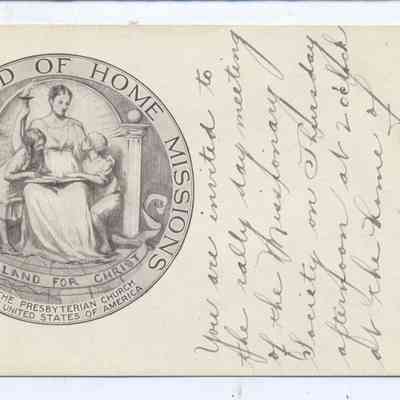 D OF HOME MISSIONS
LAND FOR CHRIST
HE PRESBYTERIAN CHURCH
UNITED STATES OF AMERICA
You are invited to
the rally day meeting
of the Missionary
Society on Thursday
afternoon at 2 o'clock
at the home of